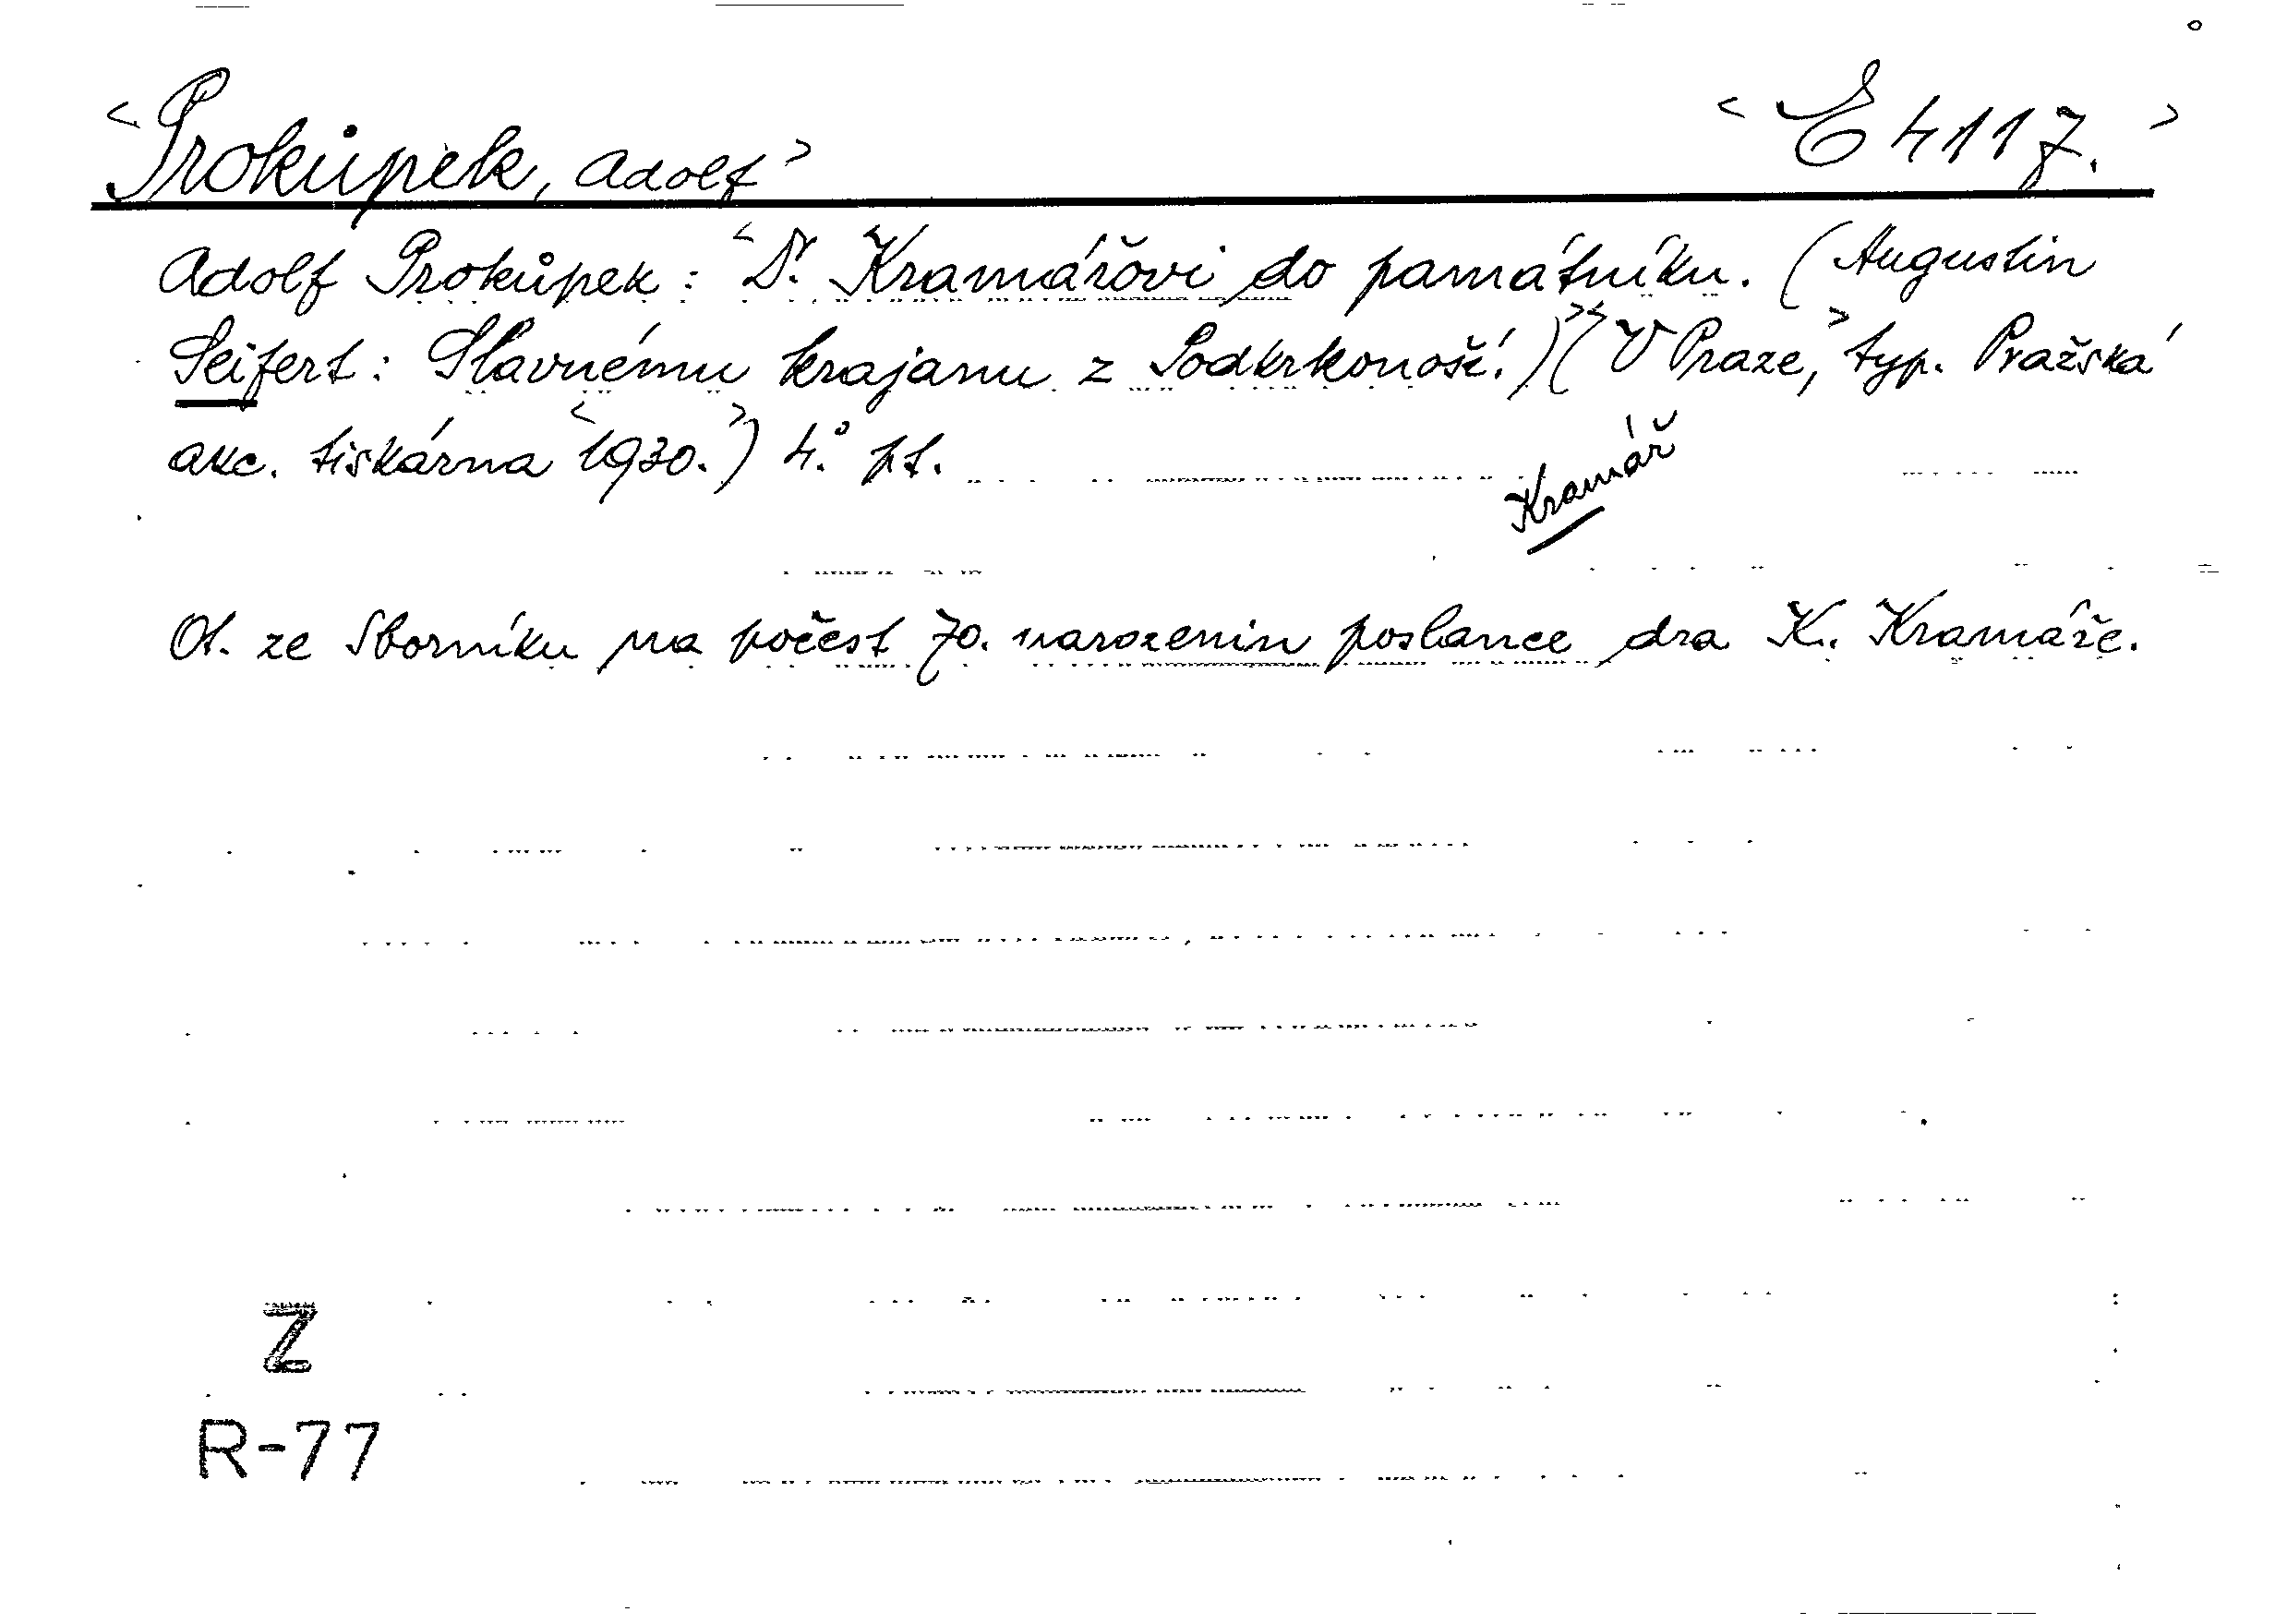 <Prokůpek, Adolf> <E 4117.>
Adolf Prokůpek: <Dr. Kramářovi do památníku. (Augustin
Seifert: Slavnému krajanu z Podkrkonoší.)> (<V Praze,> typ. Pražská
akc. tiskárna <1930.>) 4.° pt.
Kramář
Ot. ze Sborníku na počest 70. narozenin poslance dra K. Kramáře.
Z
R-77